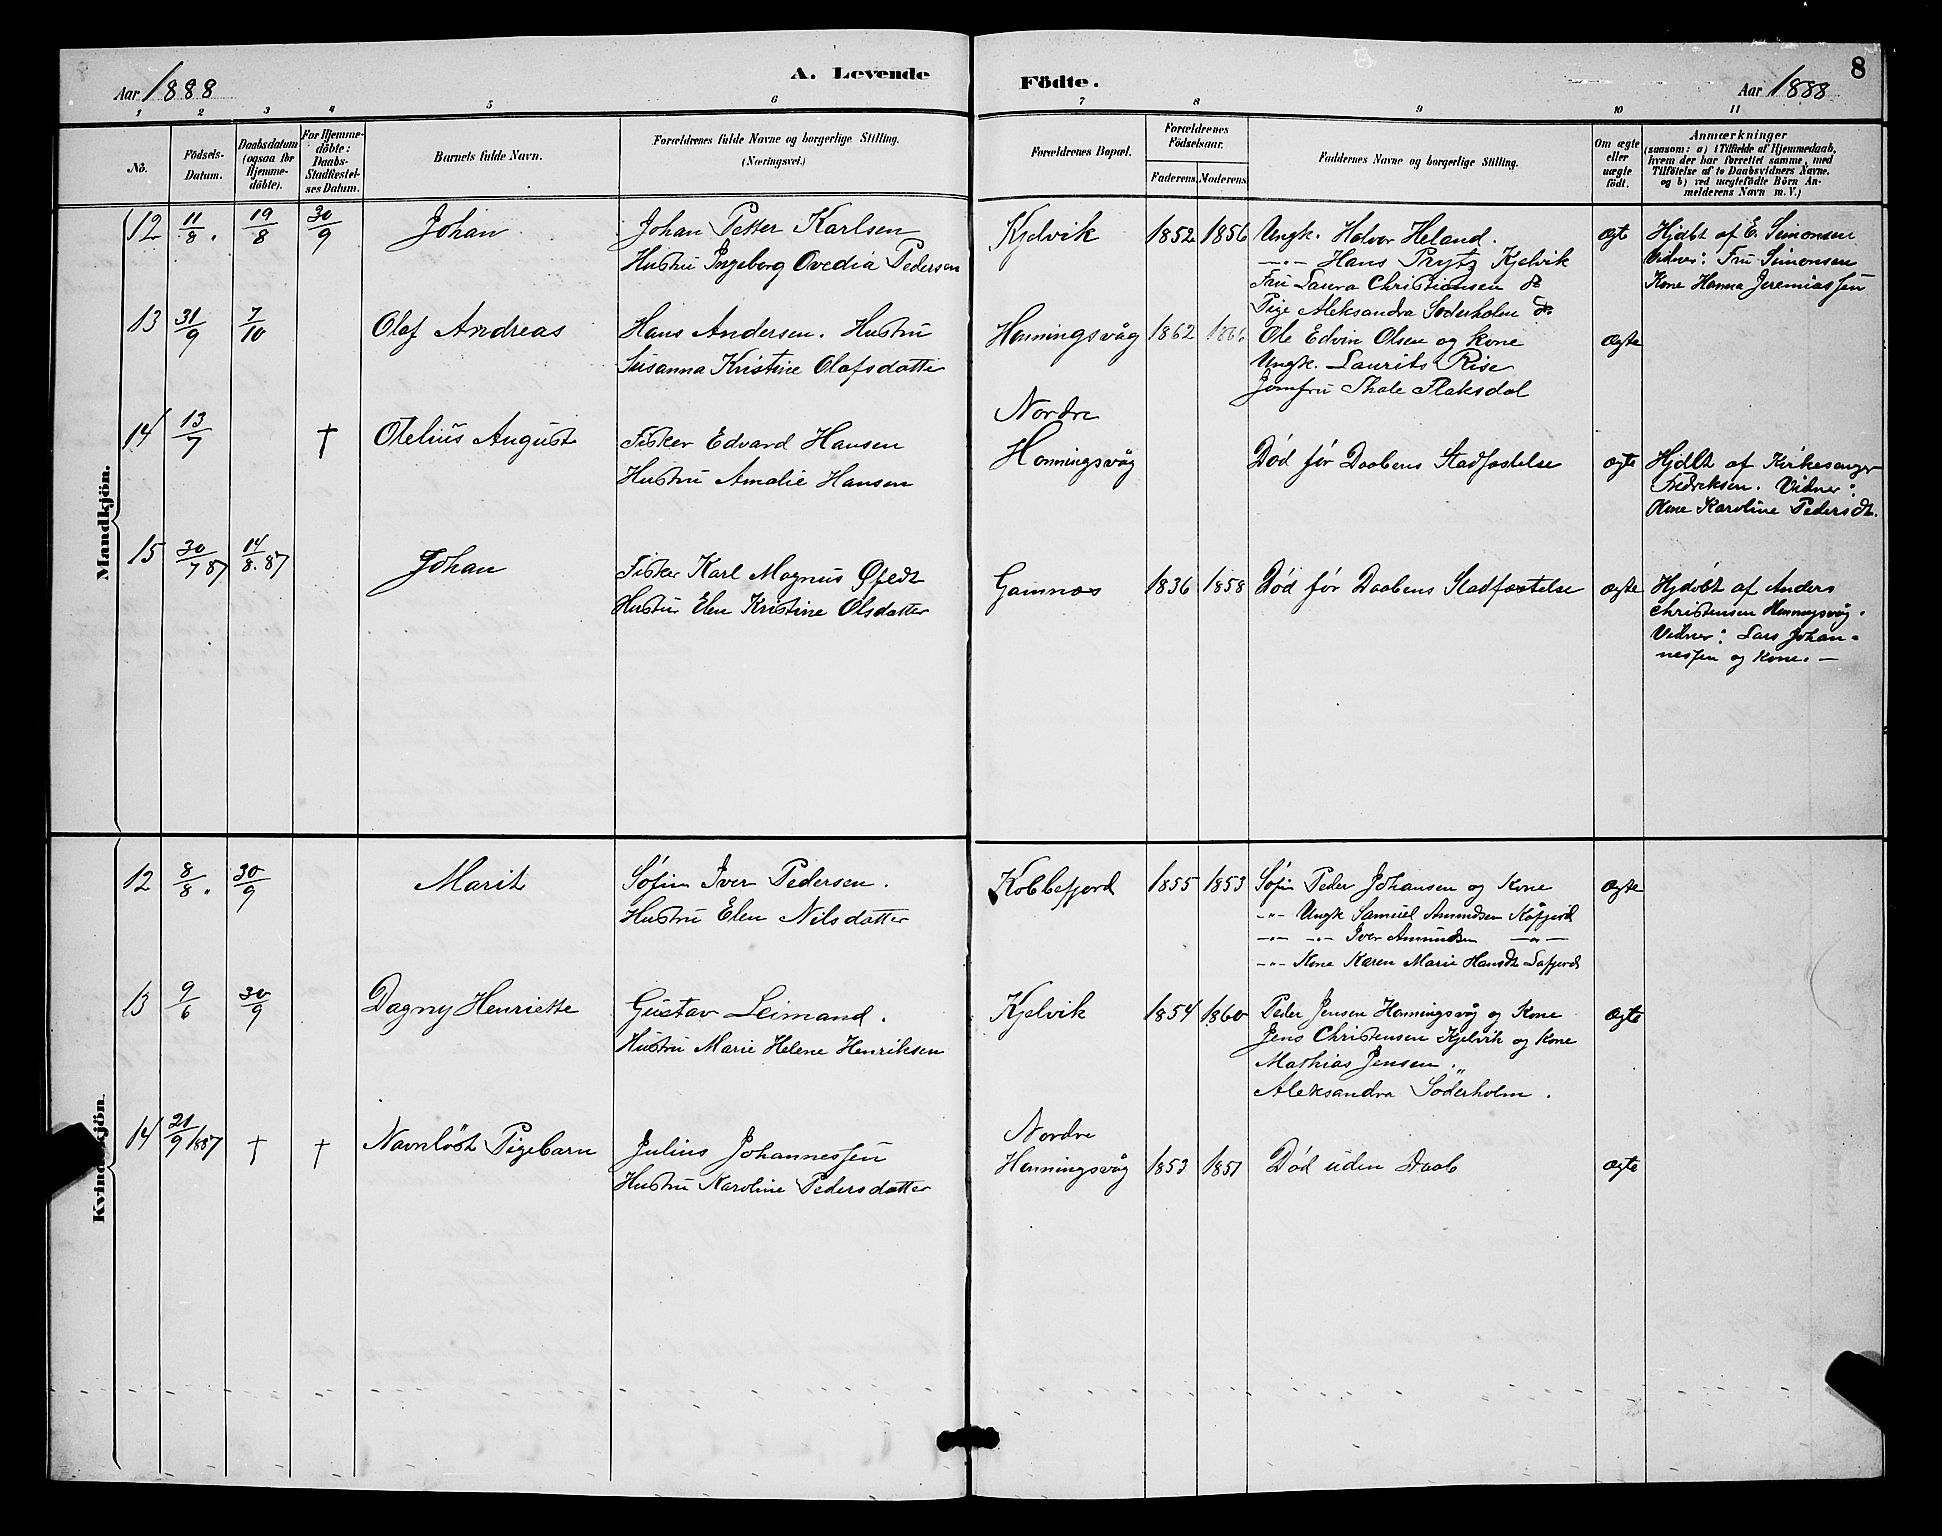 8
Aar 1888
A. Levende Födte.
Aar 1888
1 2 3 4 5 6 7 8 9 10 11
No.
Födsels-Datum.
Daabsdatum (ogsaa for Hjemme-döbte).
For Hjemme-döbte: Daabs-Stadfæstel-ses Datum.
Barnets fulde Navn.
Forældrenes fulde Navne og borgerlige Stilling.
(Næringsvei.)
Forældrenes Bopæl.
Forældrenes Födselsaar.
Faderens. Moderens.
Faddernes Navne og borgerlige Stilling.
Om ægte eller uægte födt.
Anmærkninger
(saasom: a) i Tilfælde af Hjemmedaab,
hvem der har forrettet samme, med
Tilföielse af to Daabsvidners Navne.
og b) ved uægtefödte Börn An-
melderens Navn m. V.)
Mandkjön.
12 11/8. 19/8 30/9 Johan
Johan Petter Karlsen
Hustru Ingeborg Ovedia Pedersen
Kjelvik 1852 1856
Ungk. Halvor Heland.
—"— Hans Prytz Kjelvik
Fru Laura Christiansen do
Pige Aleksandra Söderholm do
ægte
Hjdbt af E. Simonsen
Vidner: Fru Simonsen
Kone Hanna Jeremiassen
13 31/9 7/10 Olaf Andreas
Hans Andersen. Hustru
Susanna Kristine Olafsdatter
Honningsvåg 1862
Ole Edvin Olsen og Kone
Ungk. Laurits Rise
Jomfru Thale Flaksdal
ægte
14 13/7 † Otelius August
Fisker Edvard Hansen
Hustru Amalie Hansen
Nordre
Honningsvåg
Död før Daabens Stadfæstelse
ægte
Hjdbt af Kirkesanger
Fredriksen. Vidner:
Kone Karoline Pedersdt.
15 30/7 87 14/8. 87 Johan
Fisker Karl Magnus Øfedt
Hustru Elen Kristine Olsdatter
Gamnæs 1836 1858
Död før Daabens Stadfæstelse
ægte
Hjdöbt af Anders
Christensen Honningsvåg.
Vidner: Lars Johan-
nessen og Kone. —
Kvindekjön.
12 8/8. 30/9 Marit
Søfin Iver Pedersen.
Hustru Elen Nilsdatter
Kobbefjord 1855 1853
Søfin Peder Johansen og Kone
—"— Ungk Samuel Amundsen Kåfjord
—"— —"— Iver Amundsen —"—
—"— Kone Karen Marie Hansdt Lafjord
ægte
13 9/6 30/9 Dagny Henriette
Gustav Leimand.
Hustru Marie Helene Henriksen
Kjelvik 1854 1860
Peder Jensen Honningsvåg og Kone
Jens Christensen Kjelvik og Kone
Mathias Jensen.
Aleksandra Söderholm.
ægte
14 21/9 1887 † † Navnløst Pigebarn
Julius Johannessen
Hustru Karoline Pedersdatter
Nordre
Honningsvåg 1853 1851
Död uden Daab
ægte